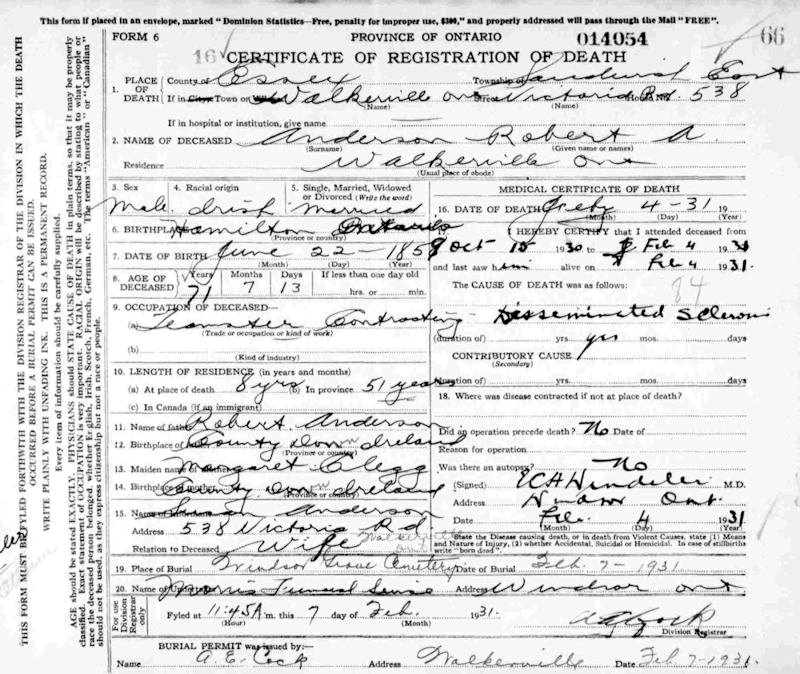 This form if placed in an envelope, marked "Dominion Statistics—Free, penalty for improper use, $300," and properly addressed will pass through the Mail "FREE".
FORM 6 PROVINCE OF ONTARIO 014054 66
CERTIFICATE OF REGISTRATION OF DEATH
1. PLACE OF DEATH County of Essex Township of Sandwich East
If in City Town or Walkerville Ont Street Victoria Rd. House No. 538
(Name) (Name)
If in hospital or institution, give name
2. NAME OF DECEASED Anderson Robert A.
(Surname) (Given name or names)
Residence Walkerville Ont
(Usual place of abode)
3. Sex 4. Racial origin 5. Single, Married, Widowed or Divorced (Write the word)
Male Irish Married
6. BIRTHPLACE Hamilton Ontario
(Province or country)
7. DATE OF BIRTH June 22 1859
(Month) (Day) (Year)
8. AGE OF DECEASED Years Months Days If less than one day old
71 7 13 hrs. or min.
9. OCCUPATION OF DECEASED—
(a) Teamster Contracting
(Trade or occupation or kind of work)
(b)
(Kind of industry)
10. LENGTH OF RESIDENCE (in years and months)
(a) At place of death 8 yrs (b) In province 51 years
(c) In Canada (if an immigrant)
11. Name of father Robert Anderson
12. Birthplace of County Down Ireland
(Province or country)
13. Maiden name of mother Margaret Clegg
14. Birthplace of County Down Ireland
(Province or country)
15. Name of Informant Anderson
Address 538 Victoria Rd. Walkerville Ont
Relation to Deceased Wife
MEDICAL CERTIFICATE OF DEATH
16. DATE OF DEATH Feb 4-31 19
(Month) (Day) (Year)
17. I HEREBY CERTIFY that I attended deceased from
Oct 15 1930 to Feb 4 1931
and last saw him alive on Feb 4 1931.
The CAUSE OF DEATH was as follows:
84
Disseminated Sclerosis
(duration of) yrs yrs. mos. days
CONTRIBUTORY CAUSE
(Secondary)
(duration of) yrs. mos. days
18. Where was disease contracted if not at place of death?
Did an operation precede death? No Date of
Reason for operation
Was there an autopsy? No
(Signed) M.D.
Address Windsor Ont.
Date Feb. 4 1931
(Month) (Day) (Year)
State the Disease causing death, or in death from Violent Causes, state (1) Means and Nature of Injury, (2) whether Accidental, Suicidal or Homicidal. In case of stillbirths write "born dead".
19. Place of Burial Windsor Grove Cemetery Date of Burial Feb. 7-1931
20. Name of Undertaker Morris Funeral Address Windsor Ont
For use of Division Registrar only
Fyled at 11:45 A.m. this 7 day of Feb. 1931.
(Hour) (Month) Division Registrar
BURIAL PERMIT was issued by:
Name A. E. Cock Address Walkerville Date Feb 7-1931.
THIS FORM MUST BE FYLED FORTHWITH WITH THE DIVISION REGISTRAR OF THE DIVISION IN WHICH THE DEATH
OCCURRED BEFORE A BURIAL PERMIT CAN BE ISSUED.
WRITE PLAINLY WITH UNFADING INK. THIS IS A PERMANENT RECORD.
Every item of information should be carefully supplied.
AGE should be stated EXACTLY. PHYSICIANS should STATE CAUSE OF DEATH in plain terms, so that it may be properly
classified. Exact statement of OCCUPATION is very important. RACIAL ORIGIN will be described by stating to what people or
race the deceased person belonged, whether English, Irish, Scotch, French, German, etc. The terms "American" or "Canadian"
should not be used, as they express citizenship but not a race or people.